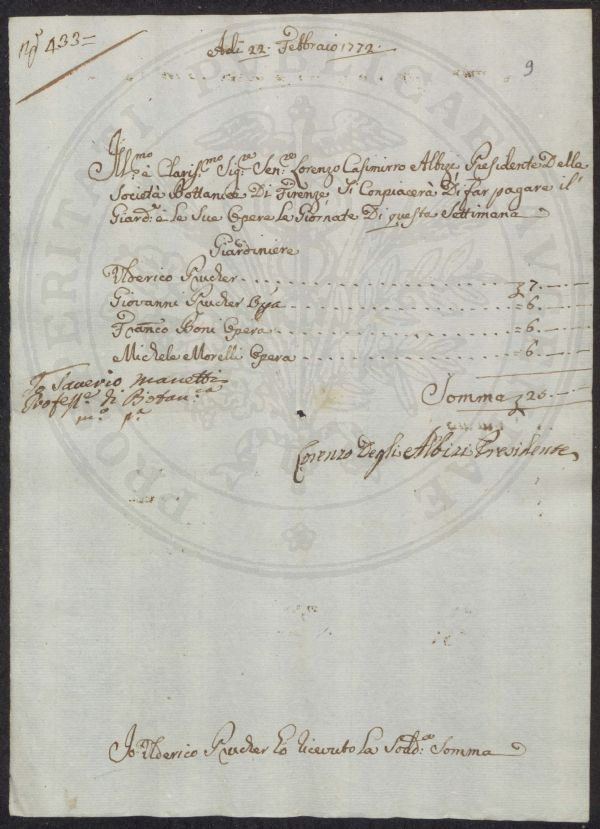 N.º 433=
Adi 22. Febbraio 1772.
9
Ill.mo e Clariss.mo Sig.re Sen.re Lorenzo Casimirro Albizi Presidente Della
Società Bottanica Di Firenze Si Conpiacerà Di far pagare il
Giard.e e le Sue Opere le Giornate Di questa Settimana
Giardiniere
Ulderico Prucher £ 7. —
Giovanni Prucher Opa = 6. —
Franco Boni Opera = 6. —
Michele Morelli Opera = 6. —
Somma £ 25. —
Io Saverio Manetti
Profess.e di Botan.ca
m.o p.a
Lorenzo Degli Albizi Presidente
Io Ulderico Prucher ho ricevuto la Sodd.a Somma